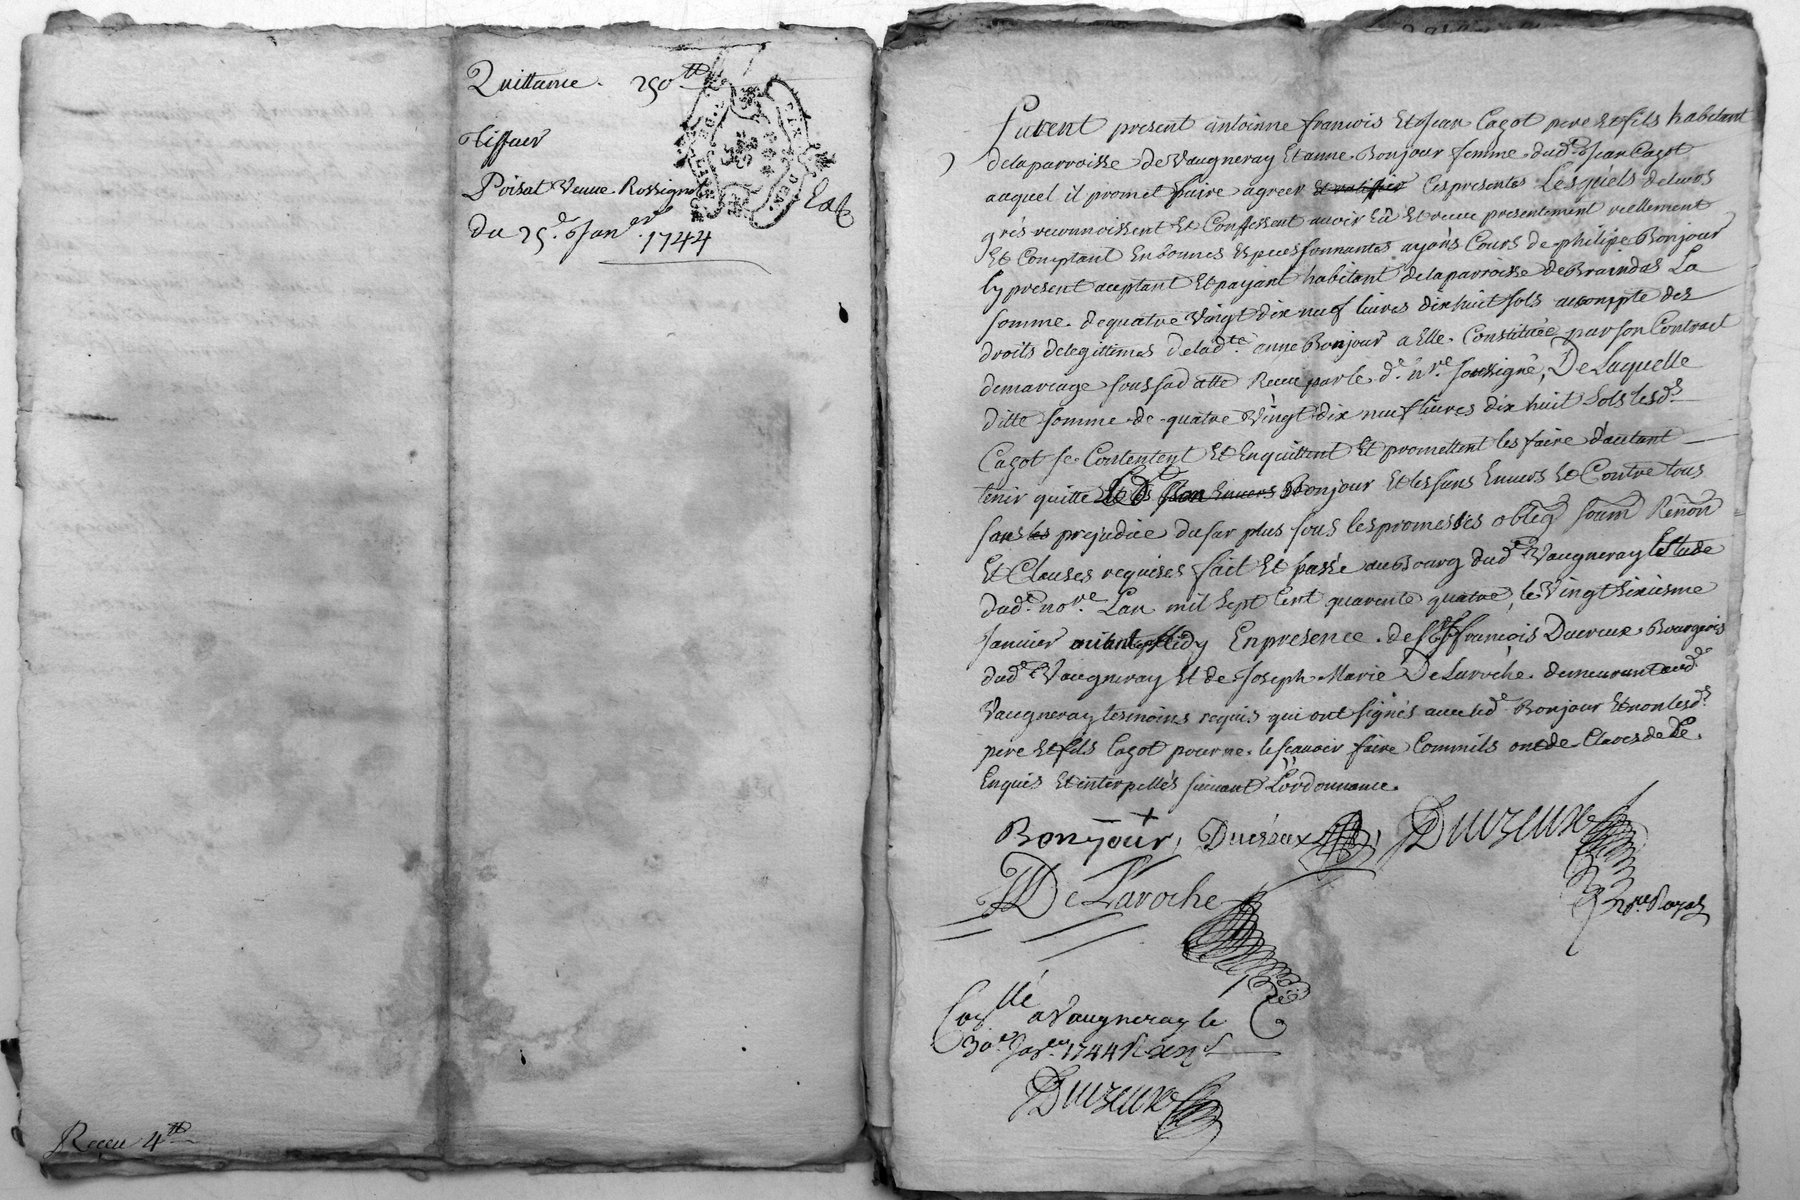 Quittance. 250ᵗᵗ
Tiffuer
Poisat Veuve Rossignol
Du 25.ᵉ Janᵉʳ. 1744
Reçeu 4ᵗᵗ
furent present antoinne francois Et Jean Cagot pere Et fils habitant
de la parroisse de Vaugneray Et anne Bonjour femme dud.ᵗ Jean Cagot
auquel il promet faire agreer Et ratiffier Ces presentes Lesquels de leurs
grés reconnoissent Et Confessent avoir Eû Et receu presentement reellement
Et Comptant En bonnes especes sonnantes ayans Cours de philipe Bonjour
Cy present aceptant Et payant habitant de la parroisse de Braindas La
somme de quatre Vingt dix neuf livres dix huit sols acompte des
droits de legittimes de lad.ᵗᵉ anne Bonjour a Elle Constituée par son Contract
de mariage sous sad atte Receu par le d.ᵗ nʳᵉ soussigné, De Laquelle
ditte somme de quatre Vingt dix neuf livres dix huit Sols lesd.ˢ
Cagot se Contentent Et En quittent Et promettent les faire d'autant
tenir quitte led.ᵗ Bonjour Et les siens Envers Et Contre tous
sans les prejudice du sur plus sous les promesses obleg soum Renon
Et Clauses requises fait Et passé au Bourg dud.ᵗ Vaugneray Estude
dud.ᵗ noʳᵉ. Lan mil sept Cent quarente quatre, le Vingt sixiesme
Janvier avant Midy En presence de sʳ francois Ducreux Bourgeois
dud.ᵗ Vaugneray Et de Joseph Marie De Laroche demeurant aud.ᵗ
Vaugneray tesmoins requis qui ont signés avec led.ᵗ Bonjour Et non lesd.ˢ
pere Et fils Cagot pour ne le scavoir faire Comm'ils ont de Claré de De
Enquis Et interpellés suivant L'ordonnance.
Bonjour, Ducreux Ducreux
De Laroche
nʳᵉ Royal
Conˡˡé a Vaugneray le
30.ᵉ Janᵉʳ. 1744
Ducreux